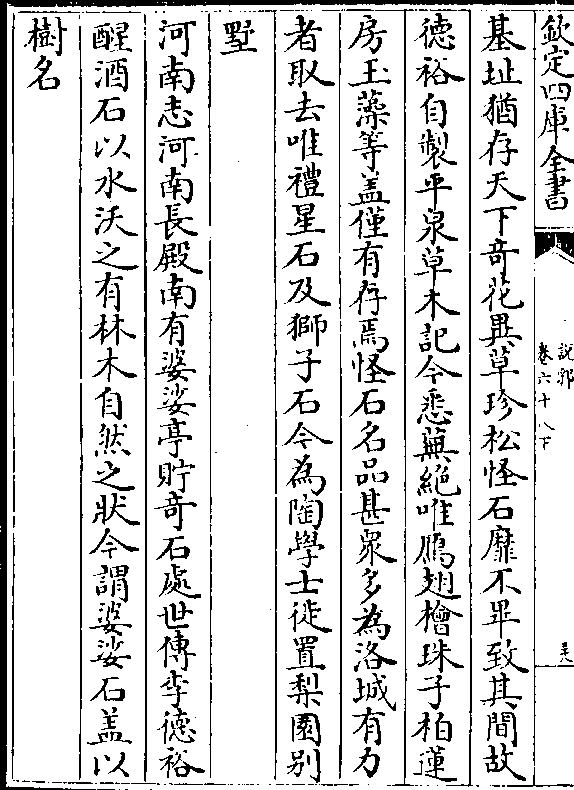 欽定四庫全書
說郛
卷六十八下
基址猶存天下竒花異草珍松怪石靡不畢致其間故
德裕自製平泉草木記今悉蕪絶唯鴈翅檜珠子柏蓮
房玉蘂等盖僅有存焉怪石名品甚衆多為洛城有力
者取去唯禮星石及獅子石今為陶學士徙置梨園别
墅
河南志河南長殿南有婆娑亭貯竒石處世傳李德裕
醒酒石以水沃之有林木自然之狀今謂婆娑石盖以
樹名